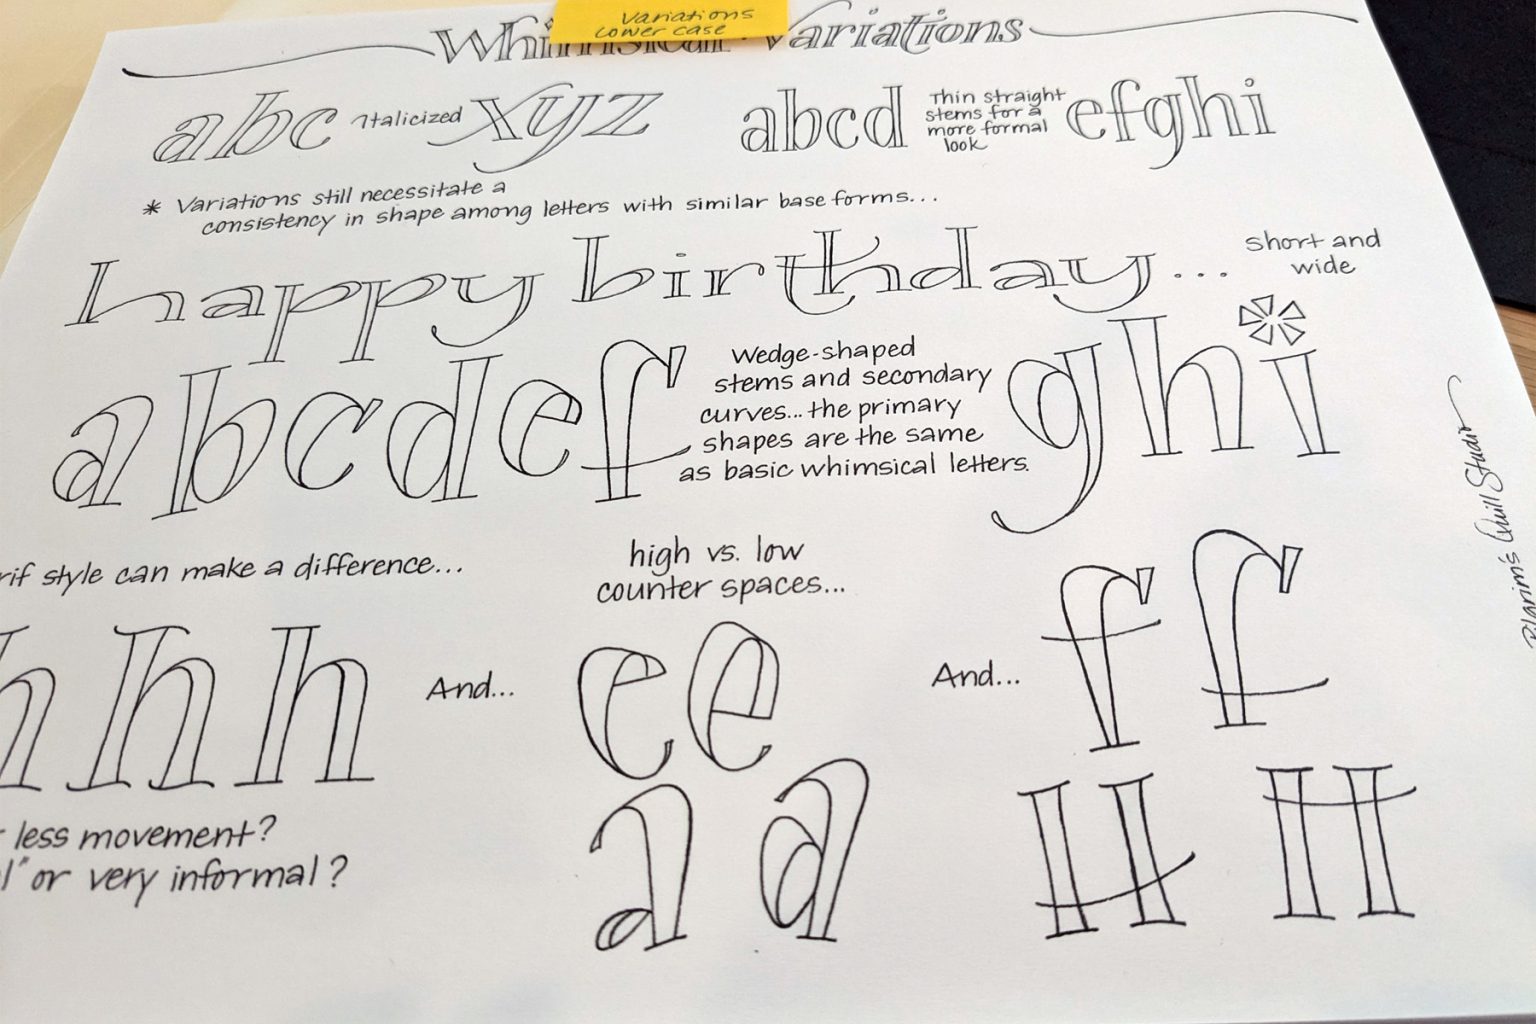 Variations
Lower case
Whimsical Variations
abc Italicized xyz
abcd Thin straight
stems for a
more formal
look
efghi
* Variations still necessitate a
consistency in shape among letters with similar base forms...
happy birthday...
short and
wide
abcdef
Wedge-shaped
stems and secondary
curves... the primary
shapes are the same
as basic whimsical letters.
ghi
rif style can make a difference...
h h h
And...
high vs. low
counter spaces...
e e
a a
And...
f f
H H
less movement?
l" or very informal?
Pilgrim's Quill Studio